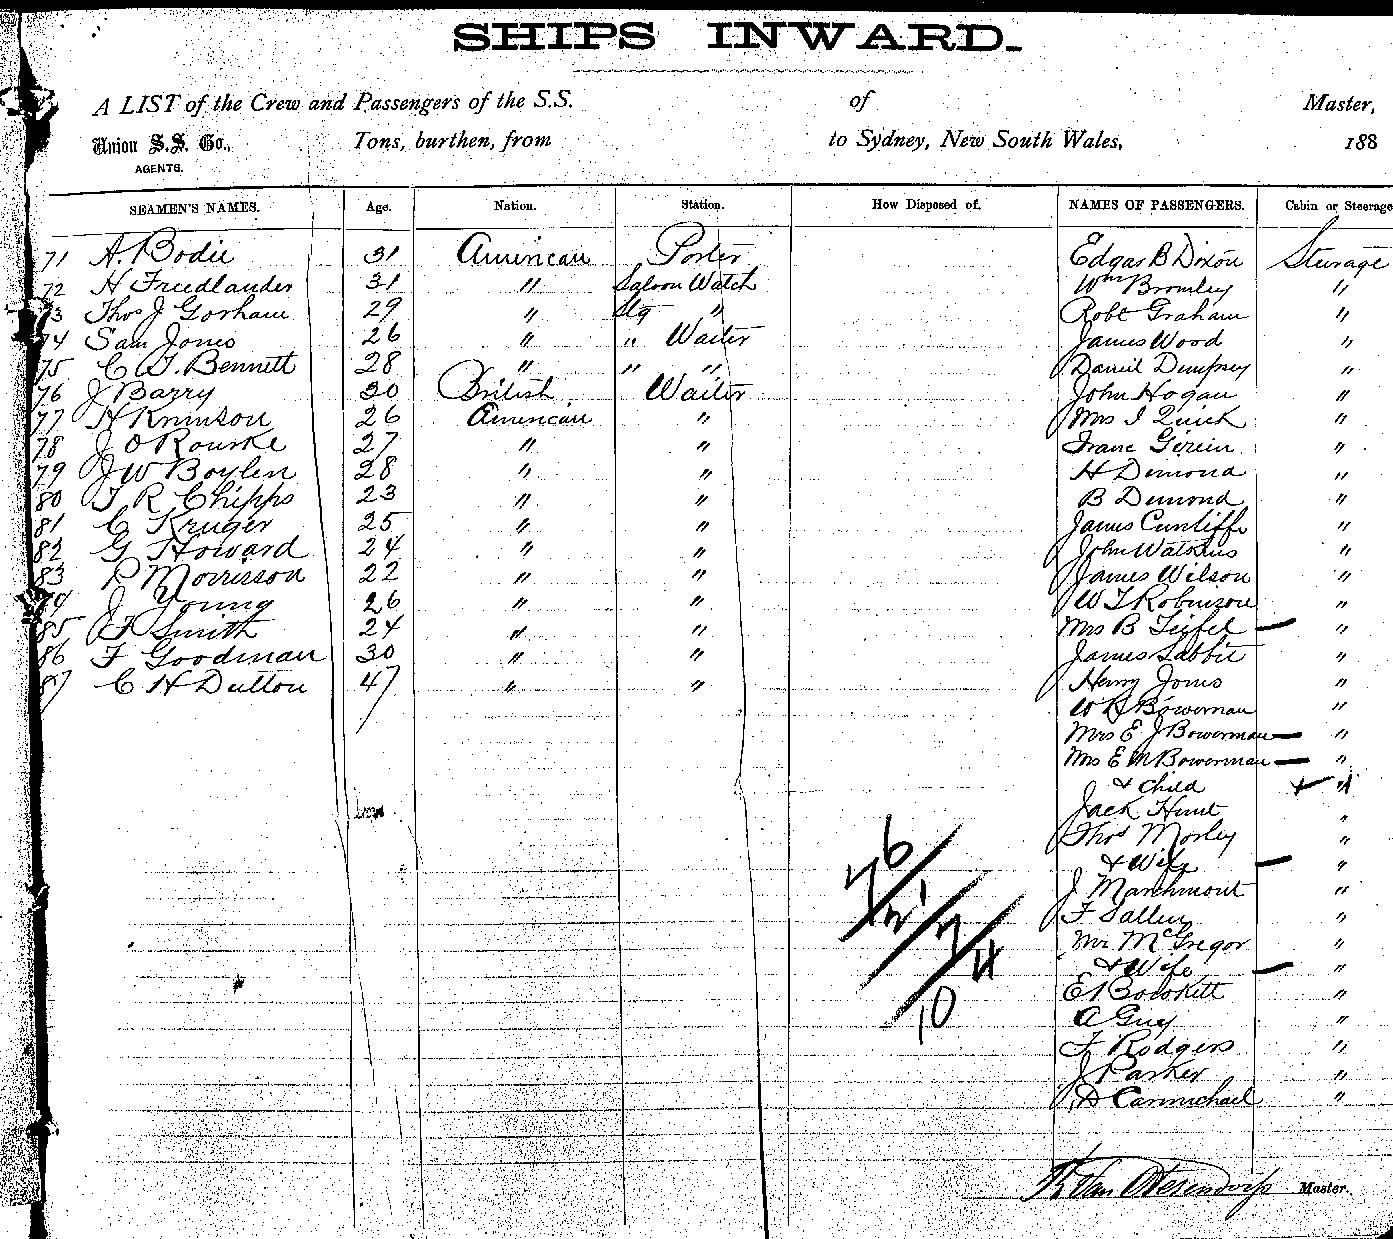 SHIPS INWARD.
A LIST of the Crew and Passengers of the S.S. of Master,
Union S.S. Co., Tons, burthen, from to Sydney, New South Wales, 188
AGENTS.
SEAMEN'S NAMES. Age. Nation. Station. How Disposed of. NAMES OF PASSENGERS. Cabin or Steerage
71 A. Bodie 31 American Porter Edgar B Dixon Steerage
72 H Freedlander 31 " Saloon Watch Wm Bromley "
73 Thos J Gorham 29 " Stg " Robt Graham "
74 Sam Jones 26 " " Waiter James Wood "
75 C T. Bennett 28 " " " Daniel Dempsey "
76 J Barry 30 British Waiter John Hogan "
77 H 26 American " Mrs I Quick "
78 J O Rourke 27 " " "
79 J W Boylen 28 " " H Demond "
80 T R Chipps 23 " " B Demond "
81 C Kruger 25 " " James Cunliffe "
82 G Howard 24 " " John "
83 P Morrisson 22 " " James Wilson "
84 J Young 26 " " W T Robinson "
85 Smith 24 " " Mrs B "
86 F Goodman 30 " " James "
87 C H Dutton 47 " " Henry Jones "
W H Bowerman "
Mrs E J Bowerman "
Mrs E M Bowerman "
& Child "
Jack Hunt "
Thos Morley "
& Wife "
J Marchmont "
F "
Mr McGregor "
& Wife "
E "
A Guy "
F Rodgers "
J Parker "
D Carmichael "
10
Master.